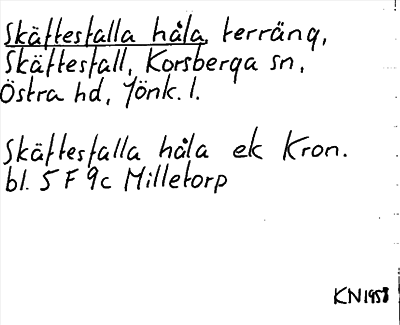 Skäftesfalla håla, terräng,
Skäftesfall, Korsberga sn,
Östra hd, Jönk. l.
Skäftesfalla håla ek Kron.
bl. 5 F 9c Milletorp
KN1958